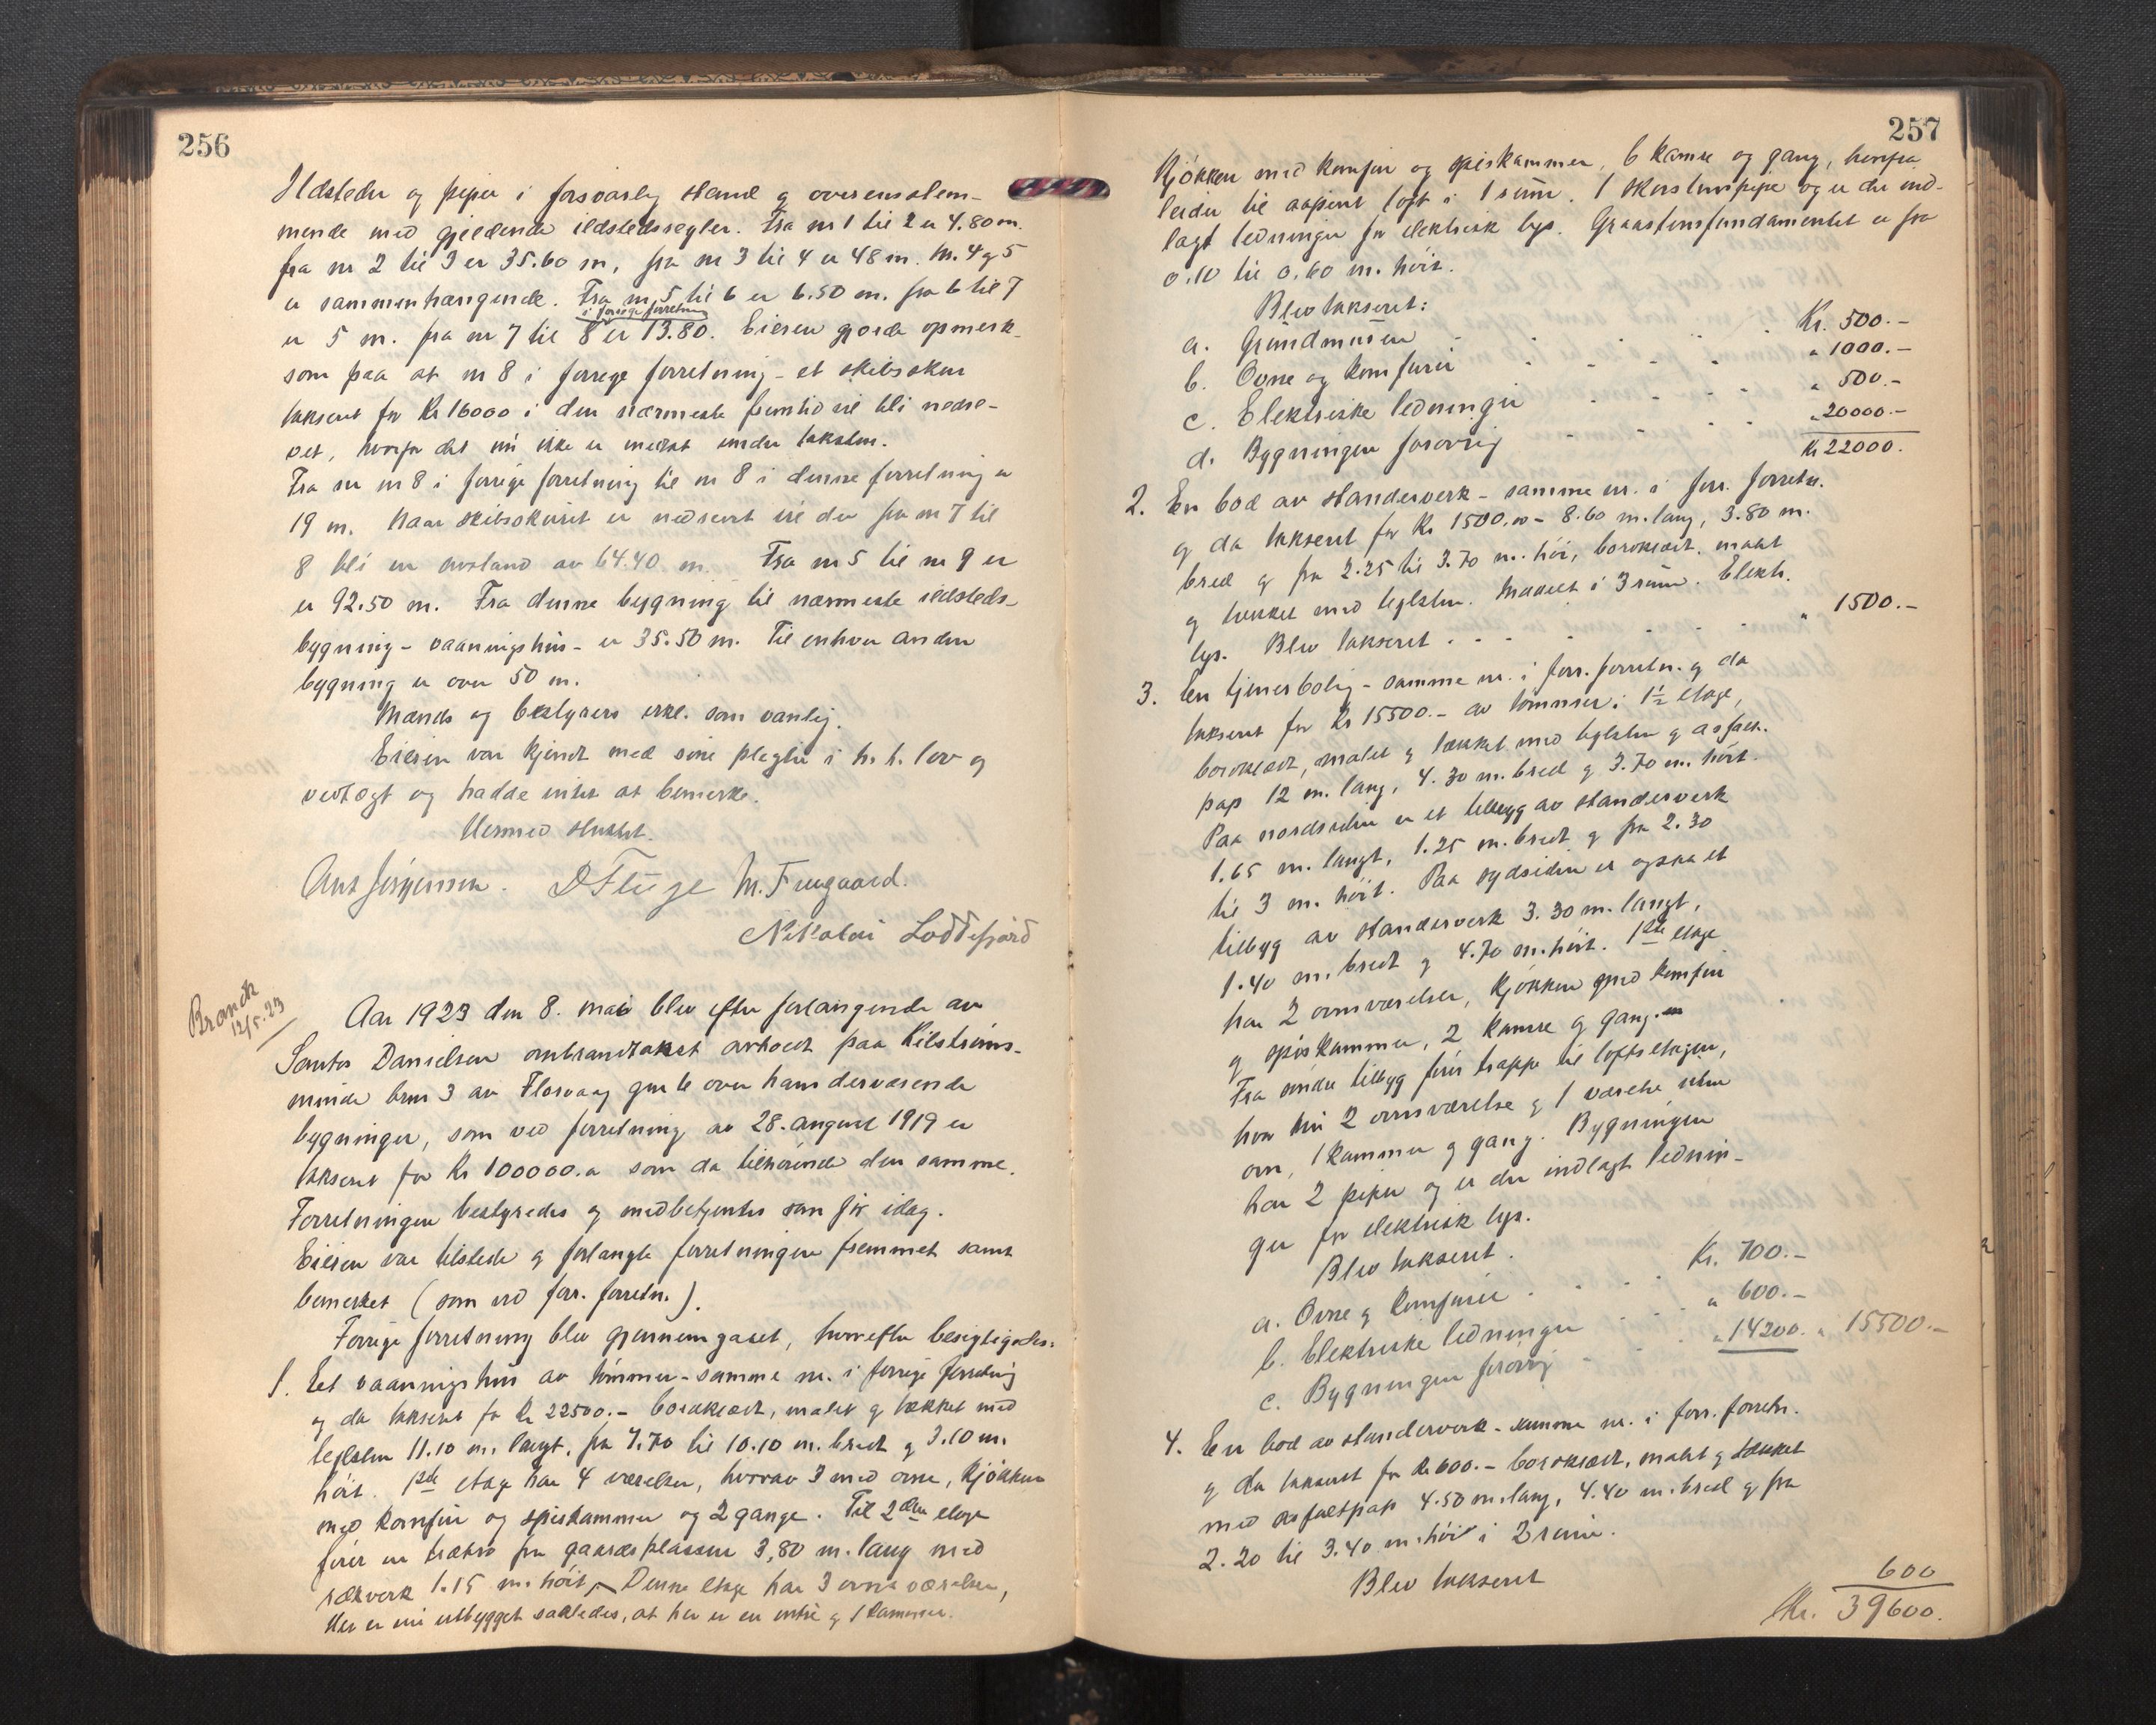 256
Ildsteder og piper i forsvarlig stand og overensstem-
mende med gjeldende ildstedsregler. Fra nr 1 til 2 er 4.80 m.
fra nr 2 til 3 er 35.60 m, fra nr 3 til 4 er 48 m. Nr. 4 og 5
er sammenhængende. Fra nr. 5 til 6 er 6.50 m. fra 6 til 7
i forrige forretning
er 5 m. fra nr 7 til 8 er 13.80. Eieren gjorde opmerk-
som paa at nr 8 i forrige forretning - et skibsskur
takseret for Kr 16000 i den nærmeste fremtid vil bli nedre-
vet, hvorfor det nu ikke er medtat under taksten.
Fra nr nr 8 i forrige forretning til nr 8 i denne forretning er
19 m. Naar skibsskuret er nedrevet vil der fra nr 7 til
8 bli en avstand av 64.40 m. Fra nr 5 til nr 9 er
er 92.50 m. Fra denne bygning til nærmeste ildsteds-
bygning - vaaningshus - er 35.50 m. Til enhver anden
bygning er over 50 m.
Mænds og bestyrers erkl. som vanlig.
Eieren var kjendt med sine pligter i h. t. lov og
vedtægt og hadde intet at bemerke.
Hermed sluttet.
Ant Jørgensen. D Fluge M. Fuugaard.
Nikolai Loddefjord
Branck
12/5.23
Aar 1923 den 8. mai blev efter forlangende av
Santos Danielsen ombrandtakst avholdt paa Kilstrøms-
minde brnr 3 av Florvaag gnr 6 over hans derværende
bygninger, som ved forretning av 28. august 1919 er
takseret for Kr 100000.00 som da tilhørende den samme.
Forretningen bestyredes og medbetjentes som før idag.
Eieren var tilstede og forlangte forretningen fremmet samt
bemerket (som ved forr. forretn.).
Forrige forretning blev gjennemgaaet, hvorefter besigtigedes:
1. Et vaaningshus av tømmer - samme nr. i forrige forretning
og da takseret for Kr 22500.- bordklædt, malet og tækket med
teglsten 11.10 m. langt, fra 7.70 til 10.10 m. bredt og 3.10 m.
høit. 1ste etage har 4 værelser, hvorav 3 med ovne, kjøkken
med komfur og spiskammer og 2 gange. Til 2den etage
fører en trætro fra gaardsplassen 3,80 m. lang med
rækverk 1.15 m. høit, Denne etage har 3 ovnsværelser,
Her er nu utbygget saaledes, at her er en entré og 1 kammer.
257
Kjøkken med komfur og spiskammer, 6 kamre og gang, herfra
leder til aapent loft i 1 rum. 1 skorstenspipe og er der ind-
lagt ledninger for elektrisk lys. Graastensfundamentet er fra
0.10 til 0.60 m. høit.
Blev takseret:
a. Grundmuren Kr. 500.-
b. Ovne og komfurer " 1000.-
c. Elektriske ledninger " 500.-
d. Bygningen forøvrig " 20000.-
Kr 22000.
2. En bod av standerverk - samme nr. i forr. forretn.
og da takseret for Kr 1500.00 - 8.60 m. lang, 3.80 m.
bred og fra 2.25 til 3.70 m. høi, bordklædt, malet
og tækket med teglsten. Indredet i 3 rum. Elektr.
lys. Blev takseret " 1500.-
3. En tjenerbolig - samme nr. i forr. forretn. og da
takseret for Kr 15500.- av tømmer i 1 1/2 etage,
bordklædt, malet og tækket med teglsten og asfalt-
pap 12 m. lang, 4.30 m. bred og 3.70 m. høit.
Paa nordsiden er et tilbygg av standerverk
1.65 m. langt, 1.25 m. bredt og fra 2.30
til 3 m. høit. Paa sydsiden er ogsaa et
tilbyg av standerverk 3.30 m. langt,
1.40 m. bredt og 4.70 m. høit. 1ste etage
har 2 ovnsværelser, kjøkken med komfur
og spiskammer, 2 kamre og gang.
Fra søndre tilbyg fører trappe til loftsetagen,
hvor der 2 ovnsværelse og 1 værelse uten
ovn, 1 kammer og gang. Bygningen
har 2 piper og er der indlagt lednin-
ger for elektrisk lys.
Blev takseret.
a. Ovne og komfurer Kr. 700.-
b. Elektriske ledninger " 600.-
c. Bygningen forøvrig " 14200. " 15500.-
4. En bod av standerverk - samme nr. i forr. forretn.
og da takseret for Kr 600.- bordklædt, malet og tækket
med asfaltpap 4.50 m. lang, 4.40 m. bred og fra
2.20 til 3.40 m. høi i 2 rum.
Blev takseret 600
Kr. 39600.